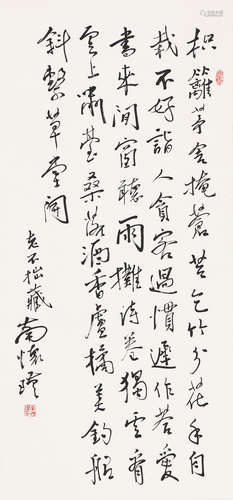 枳籬茅舍掩蒼苔乞竹分花手自
栽不好詣人貪客過慣遲作答愛
書來閒窗聽雨攤詩卷獨雲看
雲上嘯臺桑落酒香盧橘美釣船
斜繫草堂開
老不拙藏南懷瑾